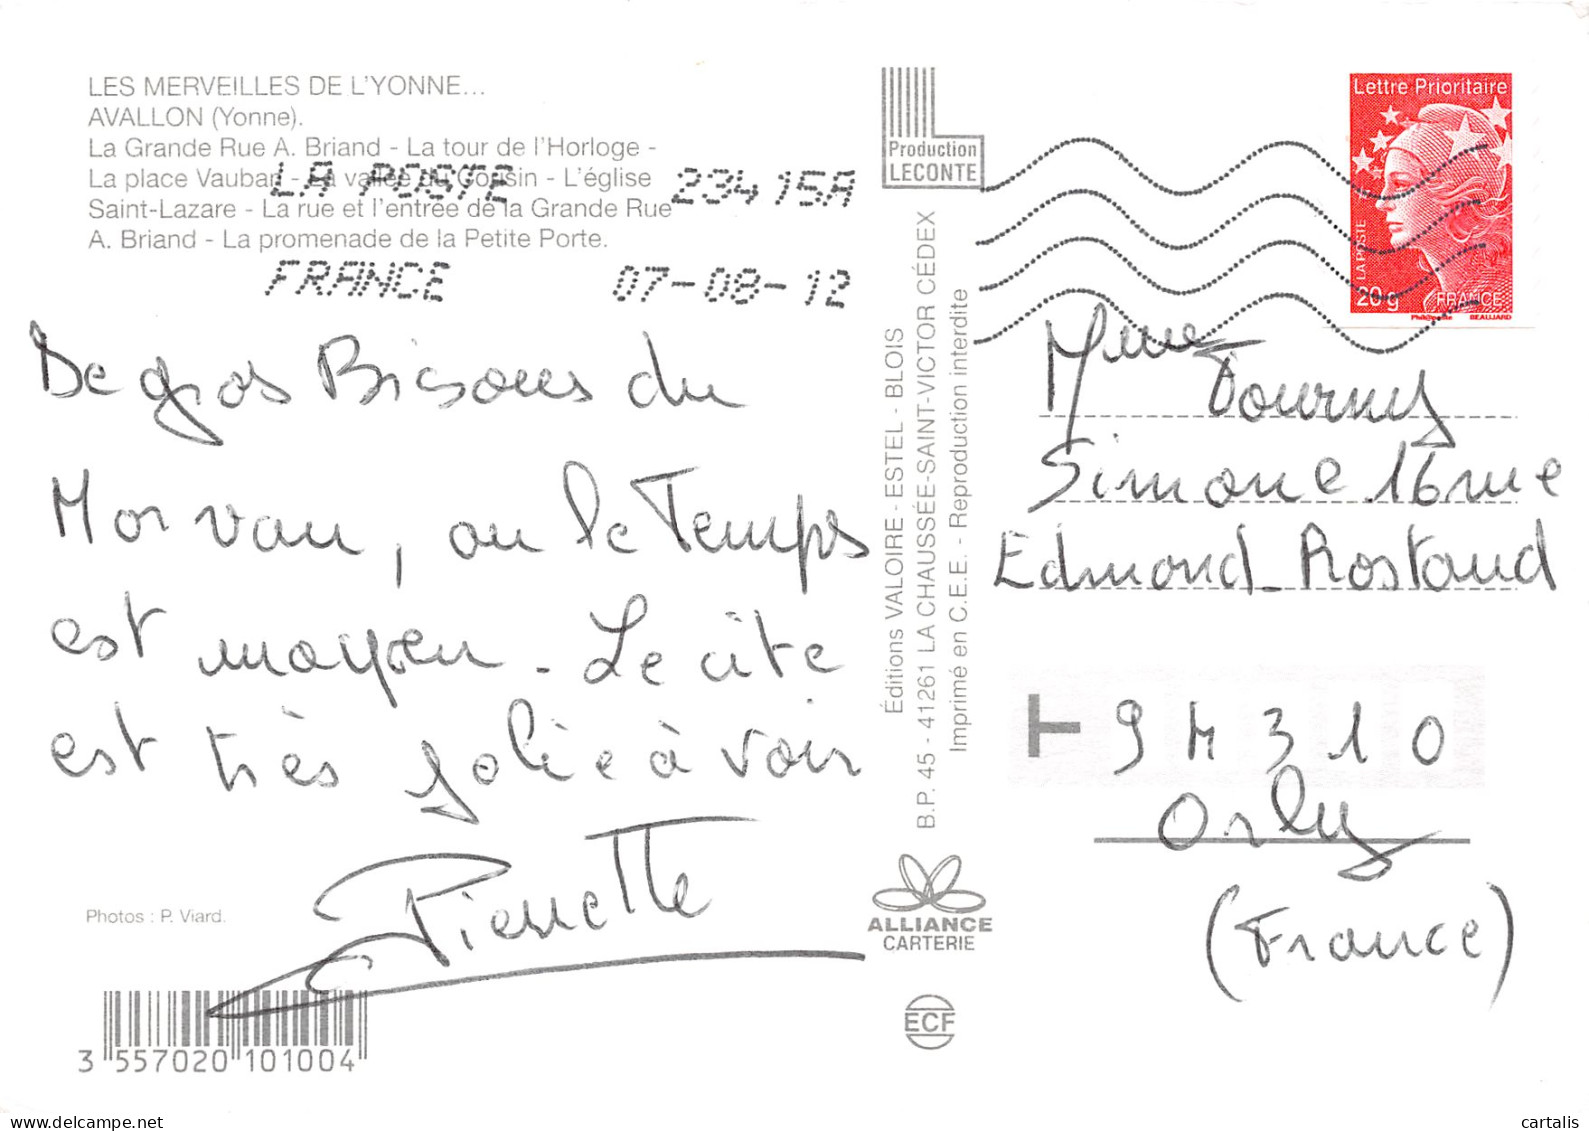 LES MERVEILLES DE L'YONNE...
AVALLON (Yonne).
La Grande Rue A. Briand - La tour de l'Horloge -
La place Vauban - La vallée du Cousin - L'église
Saint-Lazare - La rue et l'entrée de la Grande Rue
A. Briand - La promenade de la Petite Porte.
LA POSTE 23415A
FRANCE 07-08-12
De gros Bisous du
Morvan, ou le Temps
est moyen - Le cite
est très jolie à voir
Pierrette
Photos : P. Viard.
3 557020 101004
Production
LECONTE
Éditions VALOIRE - ESTEL - BLOIS
B.P. 45 - 41261 LA CHAUSSÉE-SAINT-VICTOR CÉDEX
Imprimé en C.E.E. - Reproduction interdite
ALLIANCE
CARTERIE
ECF
Lettre Prioritaire
LA POSTE
20g FRANCE
BEAUJARD
Mme Fourny
Simone 16 rue
Edmond-Rostand
94310
Orly
(France)
cartalis